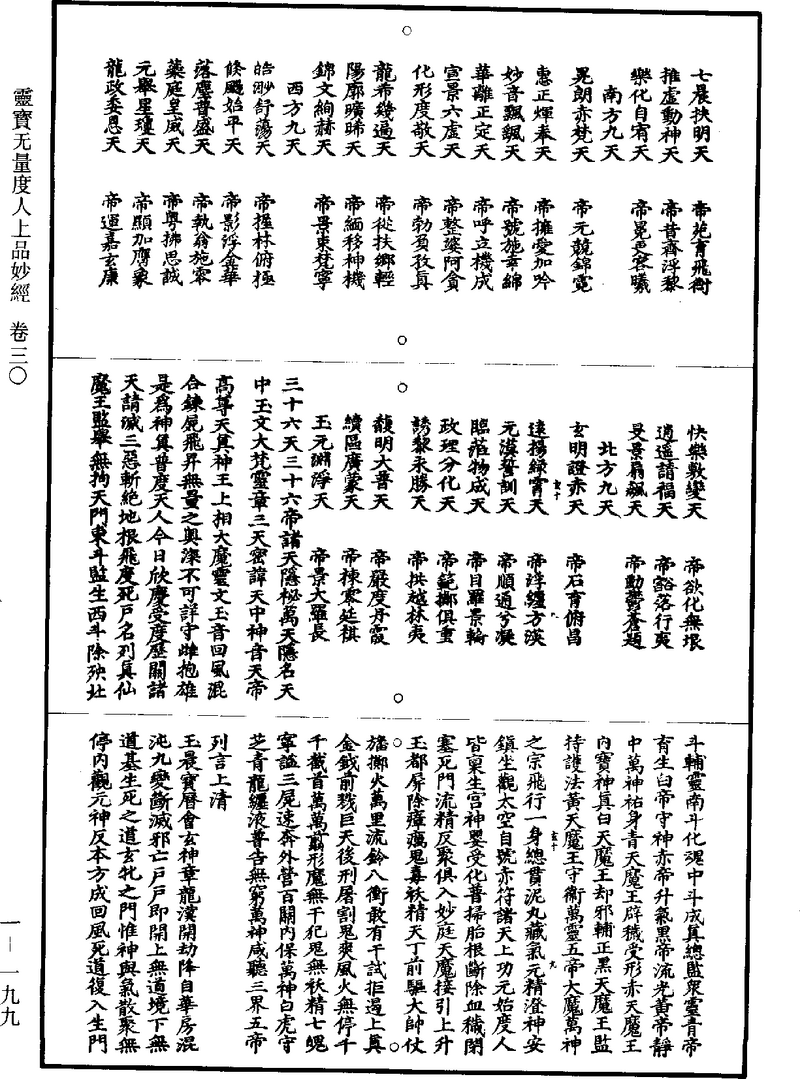 靈寶无量度人上品妙經　卷三〇
一—一九九
七晨扶明天　帝苑育飛衡
推虛動神天　帝昔齊浮黎
樂化自宥天　帝冕邑容曦
南方九天
晃朗亦梵天　帝元競錦霓
惠正煇奉天　帝擁愛加吟
妙音飄飆天　帝號施幸綿
華離正定天　帝呼立機成
宣景六虛天　帝整藥阿貪
化形度敬天　帝勃頁孜真
龍希幾過天　帝從扶鄉輕
陽廓曠晞天　帝緬移神機
錦文絢赫天　帝景東梵寧
西方九天
皓眇舒蕩天　帝握林俯極
倏颺始平天　帝影浮侖華
落塵普盛天　帝執翁施零
藥庭皇威天　帝粵拂思誠
元舉星瓊天　帝顯加膺象
龍政委恩天　帝運嘉玄康
快樂數變天　帝欲化無垠
逍遙請福天　帝豁落行爽
旻景扇飆天　帝勳鬱蒼題
北方九天
玄明證赤天　帝石育俯昌
遠揚綠霄天　帝淳纏方漢
元漢誓訓天　帝順通兮凝
臨蒞物成天　帝目羅景輪
政理分化天　帝範擲俱重
誘黎永勝天　帝拱越林夷
馥明大普天　帝嚴度丹霞
續區廣蒙天　帝棟霐延棋
玉元淵淨天　帝景大羅長
三十六天三十六帝諸天隱祕萬天隱名天
中玉文大梵靈章三天密諱天中神音天帝
高尊天真神王上相大魔靈文玉音回風混
合鍊屍飛昇無量之奧深不可詳守雌抱雄
是爲神真普度天人今日欣慶受度歷關諸
天請滅三惡斬絕地根飛度死戶名列真仙
魔王監舉無拘天門東斗監生西斗除殃北
斗輔靈南斗化魂中斗成真總監衆靈青帝
育生白帝守神赤帝升氣黑帝流光黃帝靜
中萬神祐身青天魔王辟穢受形赤天魔王
內寶神真白天魔王却邪輔正黑天魔王監
持護法黃天魔王守衞萬靈五帝大魔萬神
之宗飛行一身總貫泥丸藏氣元精澄神安
鎮坐觀太空自號赤符諸天上功元始度人
皆稟生宮神嬰受化普掃胎根斷除血穢閉
塞死門流精反聚俱入妙庭天魔接引上升
玉都屏除瘴癘鬼毒祅精天丁前驅大帥仗
旛擲火萬里流鈴八衝敢有干試拒遏上真
金鉞前戮巨天後刑屠割鬼爽風火無停千
千截首萬萬翦形魔無干犯鬼無祅精七魄
寧謐三屍速奔外營百關內保萬神白虎守
芝青龍纏液普告無窮萬神咸聽三界五帝
列言上清
玉晨寶曆會玄神章龍漢開劫降自華房混
沌九變斷滅邪亡戶戶即開上無道境下無
道基生死之道玄牝之門惟神與氣散聚無
停內觀元神反本方成回風死道復入生門